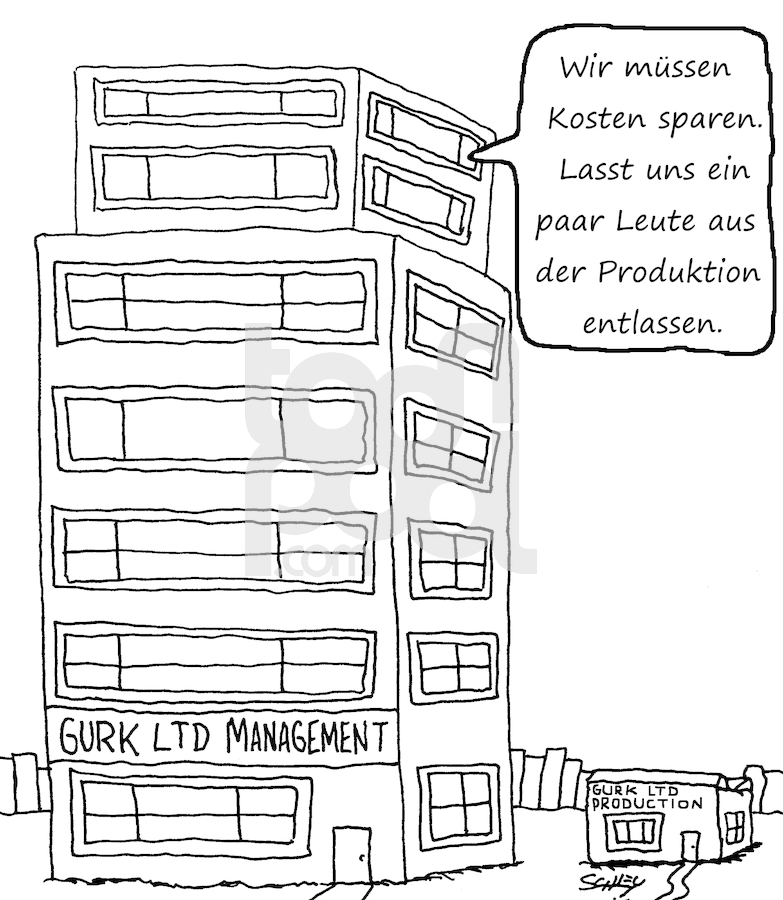 Wir müssen
Kosten sparen.
Lasst uns ein
paar Leute aus
der Produktion
entlassen.
toonpool
.com
GURK LTD MANAGEMENT
GURK LTD
PRODUCTION
SCHLEY